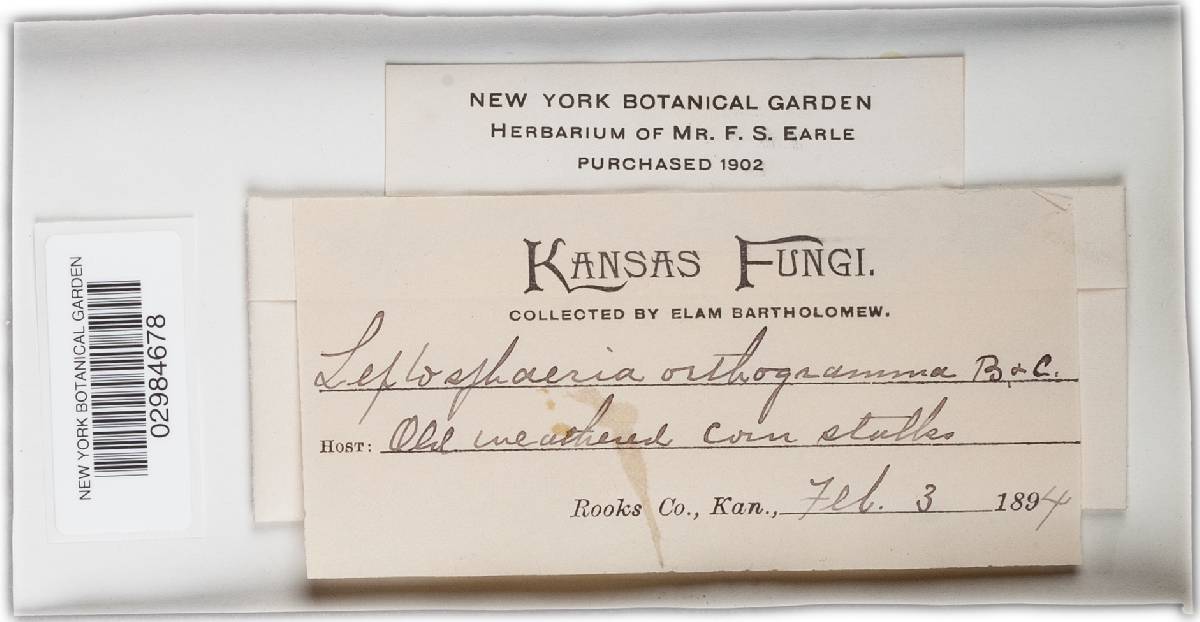 NEW YORK BOTANICAL GARDEN
HERBARIUM OF MR. F. S. EARLE
PURCHASED 1902
KANSAS FUNGI.
COLLECTED BY ELAM BARTHOLOMEW.
Leptosphaeria orthogramma B. & C.
HOST: Old weathered corn stalks
Rooks Co., Kan., Feb. 3 1894
NEW YORK BOTANICAL GARDEN
02984678